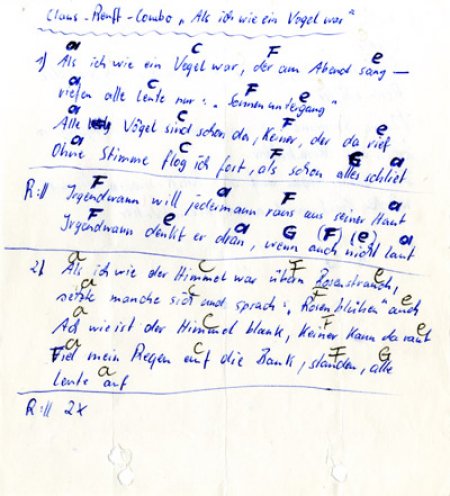 Claus-Renft-Combo „Als ich wie ein Vogel war"
a C F e
1) Als ich wie ein Vogel war, der am Abend sang —
a C F e
riefen alle Leute nur: „Sonnenuntergang"
a C F e
Alle Vögel sind schon da, keiner, der da rief
a C F G a
Ohne Stimme flog ich fort, als schon alles schlief
F a F a
R:|| Irgendwann will jedermann raus aus seiner Haut
F e G (F) (e) a
Irgendwann denkt er dran, wenn auch nicht laut
a C F e
2) Als ich wie der Himmel war überm Rosenstrauch,
a C F e
setzte manche sich und sprach: „Rosen blühen" auch
a C F e
Ach wie ist der Himmel blank, keiner kann da rauf
a C F G
Fiel mein Regen auf die Bank, standen, alle
a
Leute auf
R:|| 2x